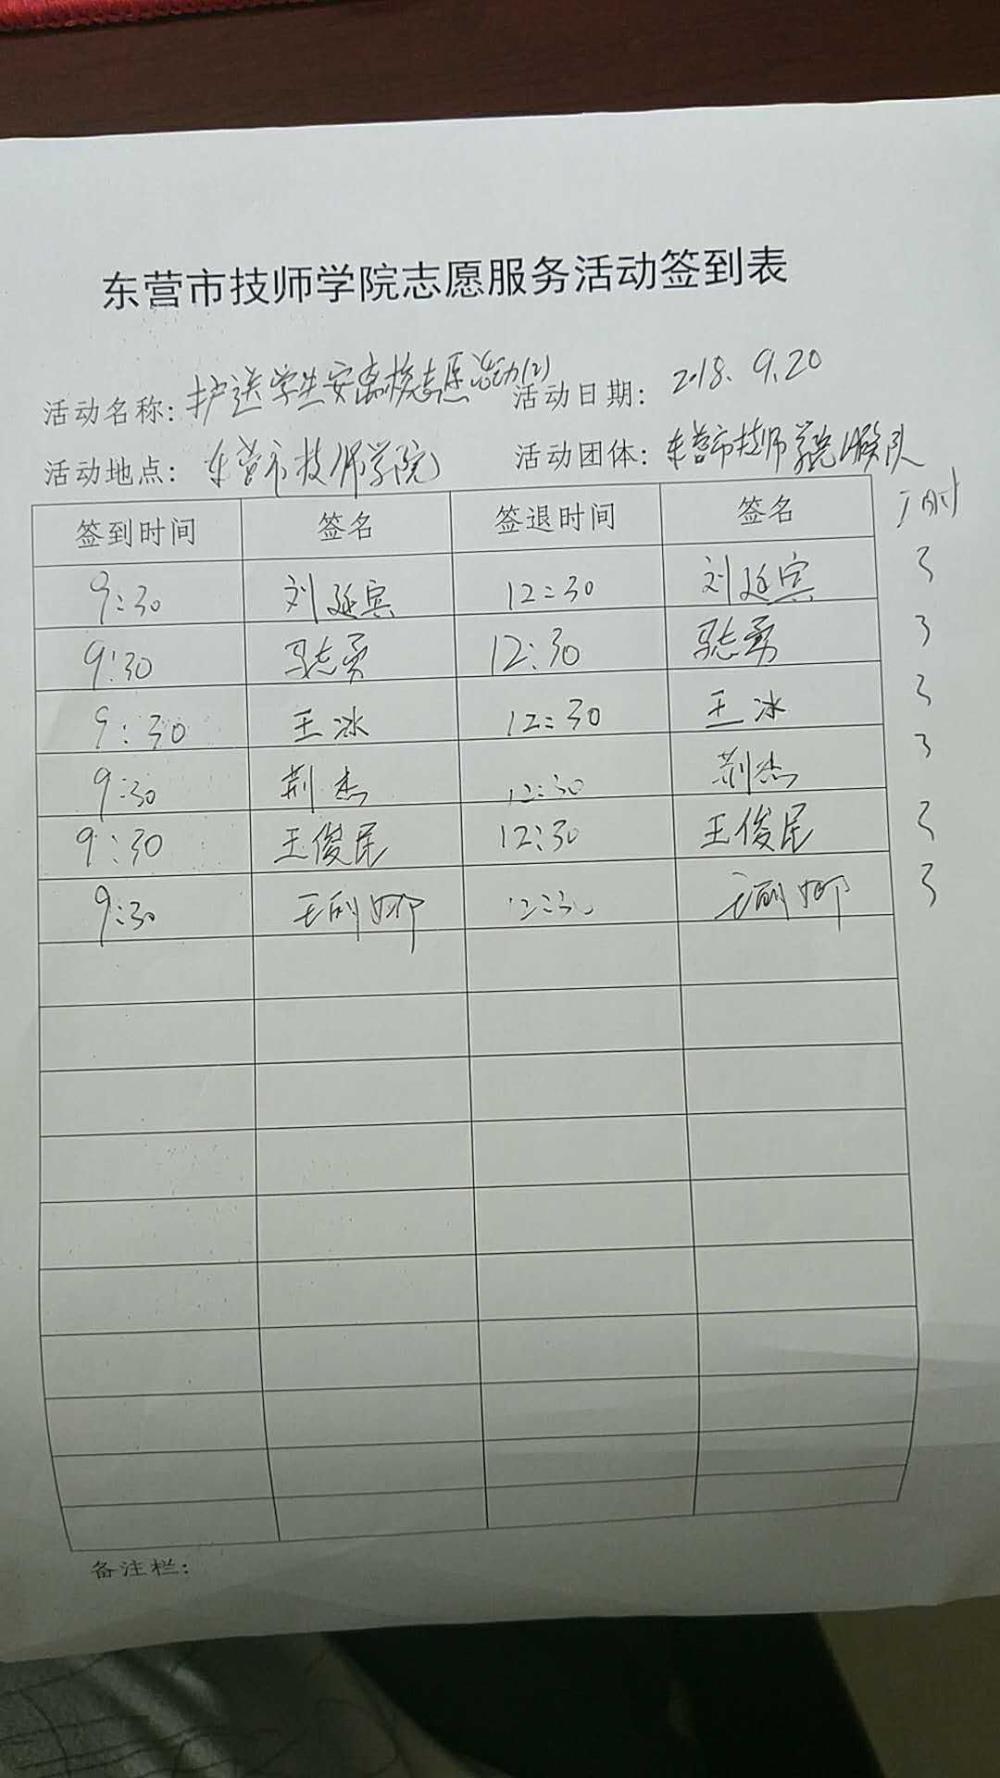 东营市技师学院志愿服务活动签到表
活动名称：护送学生安离校志愿活动(2) 活动日期：2018.9.20
活动地点：东营市技师学院 活动团体：东营市技师学院服队
签到时间 签名 签退时间 签名 工时
9:30 刘延宾 12:30 刘延宾 3
9:30 马志勇 12:30 马志勇 3
9:30 王冰 12:30 王冰 3
9:30 荆杰 12:30 荆杰 3
9:30 王俊民 12:30 王俊民 3
9:30 王丽娜 12:30 王丽娜 3
备注栏：